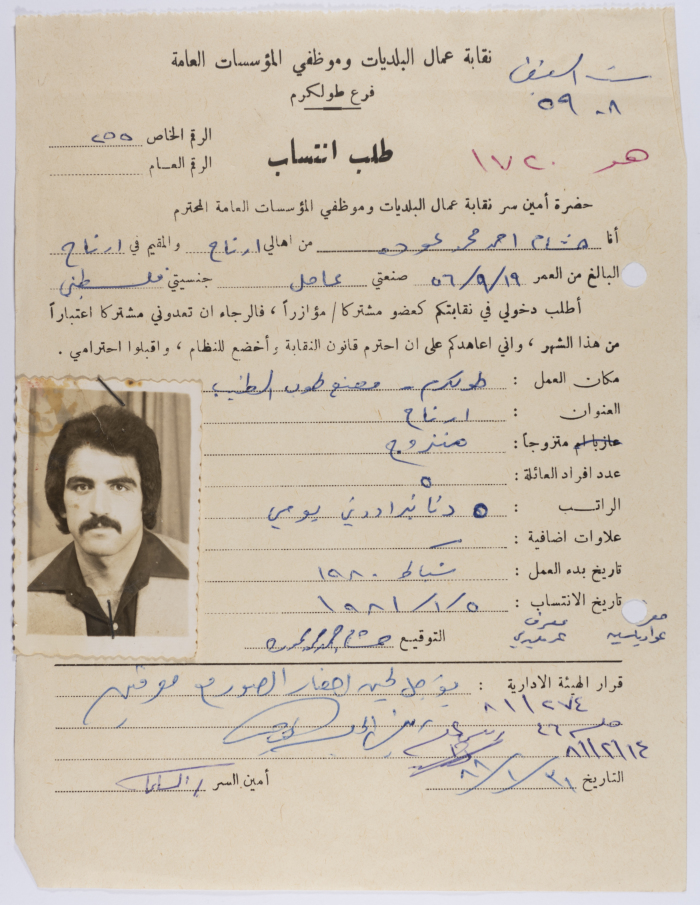 نقابة عمال البلديات وموظفي المؤسسات العامة
فرع طولكرم
٥٩٠٨
الرقم الخاص ٢٥٥
الرقم العـام
طلب انتساب
هو ١٧٢٠
حضرة أمين سر نقابة عمال البلديات وموظفي المؤسسات العامة المحترم
أنا هشام احمد محمد عوده من اهالي ارتاح والمقيم في ارتاح
البالغ من العمر ٥٦/٩/١٩ صنعتي عامل جنسيتي فلسطيني
أطلب دخولي في نقابتكم كعضو مشتركا/ مؤازراً ، فالرجاء ان تعدوني مشتركا اعتباراً
من هذا الشهر ، واني اعاهدكم على ان احترم قانون النقابة وأخضع للنظام ، واقبلوا احترامي .
مكان العمل : طولكرم - مصنع طوب الطنيب
العنوان : ارتاح
متزوجاً : متزوج
عدد افراد العائلة : ٥
الراتـــب : ٥ دنانير اردني يومي
علاوات اضافية : -
تاريخ بدء العمل : شباط ١٩٨٠
تاريخ الانتساب : ١٩٨١/١/٥
معرف
التوقيع
قرار الهيئة الادارية : يؤجل لحين احضار الصور مع معرفين
٨١/٢٧٤
جلسة ٤٦
٨١/٢/١٤
التاريخ ٨١/١/٣١
أمين السر